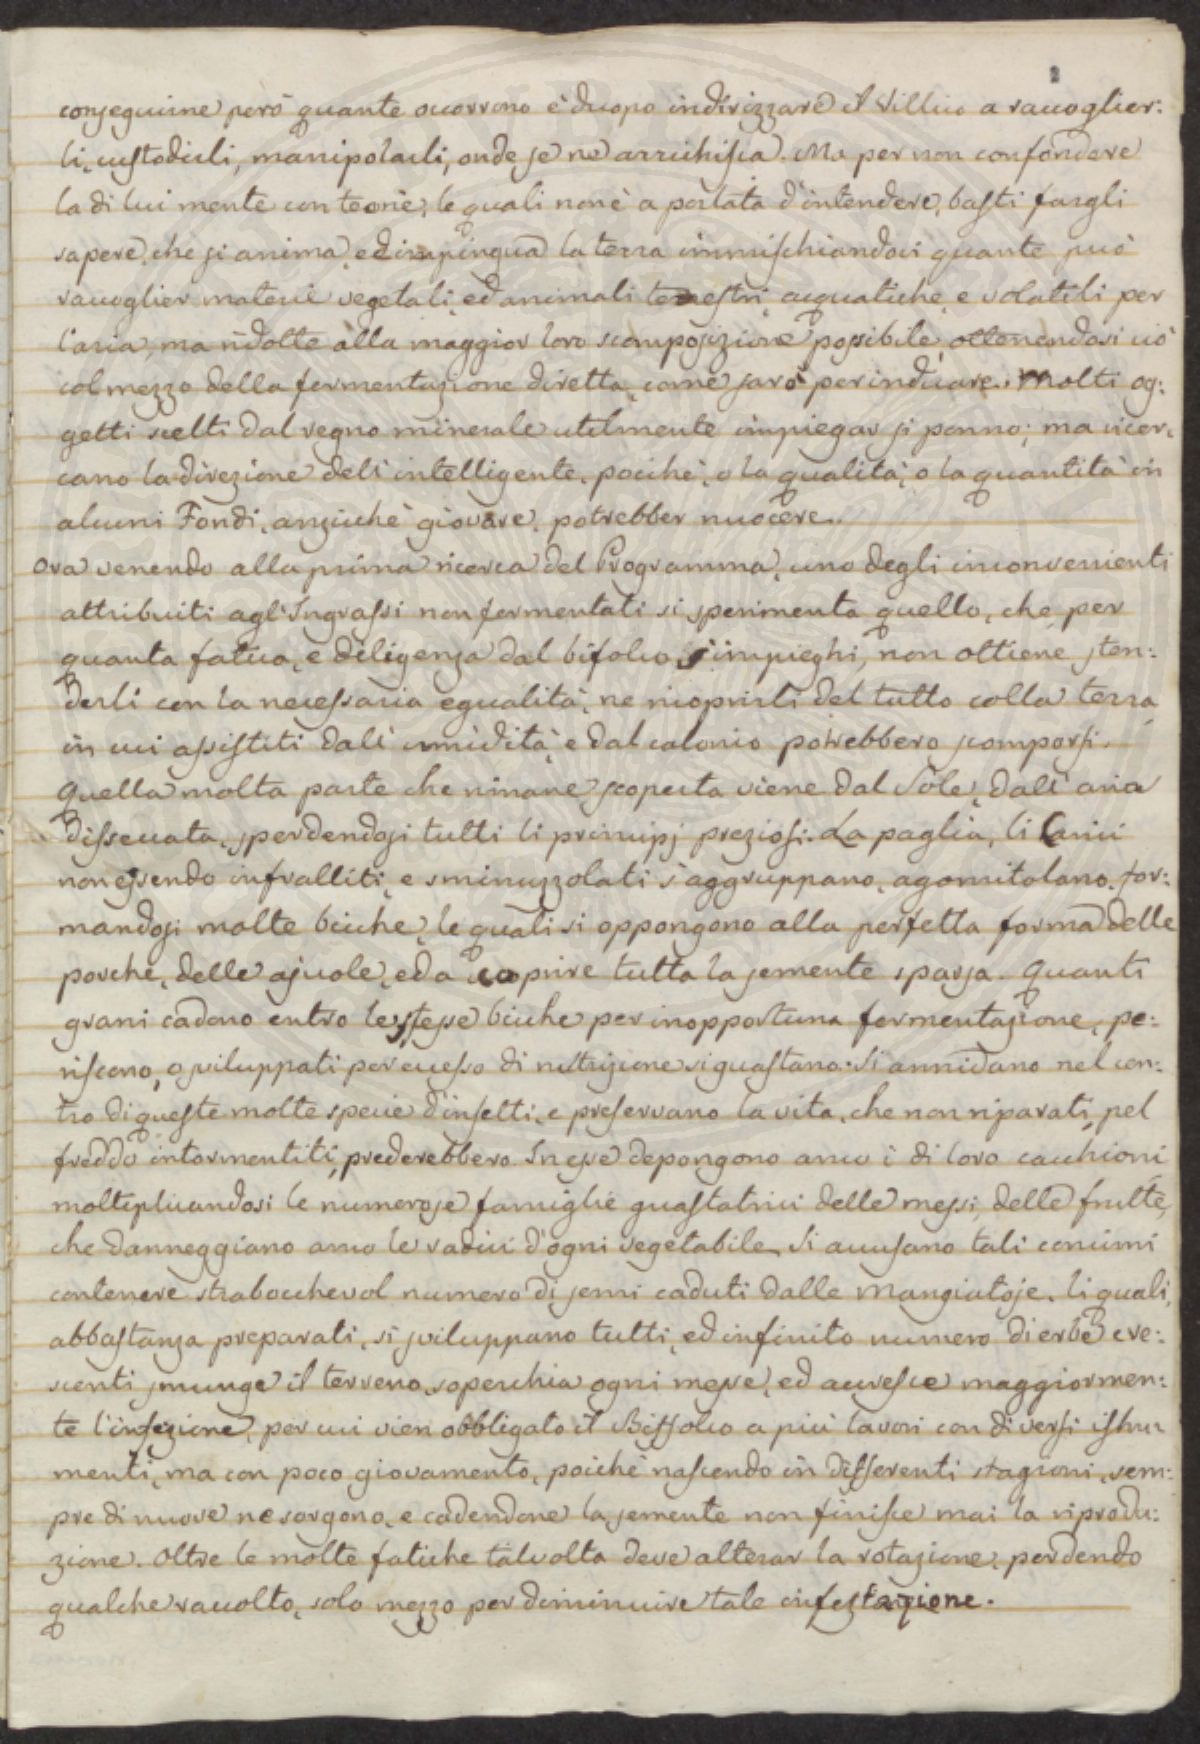 2
conseguirne però quante occorrono è duopo indirizzare il Villico a raccoglier:
li, custodirli, manipolarli, onde se ne arrichisca. Ma per non confondere
la di lui mente con teorie, le quali non è a portata d'intendere, basti fargli
sapere, che si anima, ed impingua la terra immischiandovi quante può
raccoglier materie vegetali, ed animali terrestri, acquatiche, e volatili per
l'aria, ma ridotte alla maggior loro scomposizione possibile, ottenendosi ciò
col mezzo della fermentazione diretta, come sarò per indicare. Molti og:
getti scelti dal regno minerale utilmente impiegar si ponno; ma ricer:
cano la direzione dell'intelligente, poiché, o la qualità, o la quantità in
alcuni Fondi, anziché giovare, potrebber nuocere.
Ora venendo alla prima ricerca del Programma, uno degli inconvenienti
attribuiti agl'Ingrassi non fermentati si sperimenta quello, che per
quanta fatica, e diligenza dal bifolco s'impieghi, non ottiene sten:
derli con la necessaria egualità, ne ricoprirli del tutto colla terra
in cui assistiti dall'umidità, e dal calorico potrebbero scomporsi.
Quella molta parte che rimane scoperta viene dal Sole, dall'aria
disseccata, sperdendosi tutti li principj preziosi. La paglia, li
non essendo infralliti, e sminuzzolati s'aggruppano, agomitolano, for:
mandosi molte bicche, le quali si oppongono alla perfetta forma delle
porche, delle ajuole, ed a coprire tutta la semente sparsa. Quanti
grani cadono entro le stesse bicche per inopportuna fermentazione, pe:
riscono, o sviluppati per eccesso di nutrizione si guastano. Si annidano nel cen:
tro di queste molte specie d'insetti, e preservano la vita, che non riparati, pel
freddo intormentiti, prederebbero. In esse depongono anco i di loro cacchioni
moltiplicandosi le numerose famiglie guastatrici delle messi, delle frutte,
che danneggiano anco le radici d'ogni vegetabile. Si accusano tali concimi
contenere strabocchevol numero di semi caduti dalle mangiatoje, li quali,
abbastanza preparati, si sviluppano tutti, ed infinito numero di erbe cre:
scenti smunge il terreno, soperchia ogni messe, ed accresce maggiormen:
te l'infezione, per cui vien obbligato il Biffolco a più lavori con diversi istru:
menti, ma con poco giovamento, poiché nascendo in differenti stagioni, sem:
pre di nuove ne sorgono, e cadendone la semente non finisce mai la riprodu:
zione. Oltre le molte fatiche talvolta deve alterar la rotazione, perdendo
qualche raccolto, solo mezzo per diminuire tale infestazione.